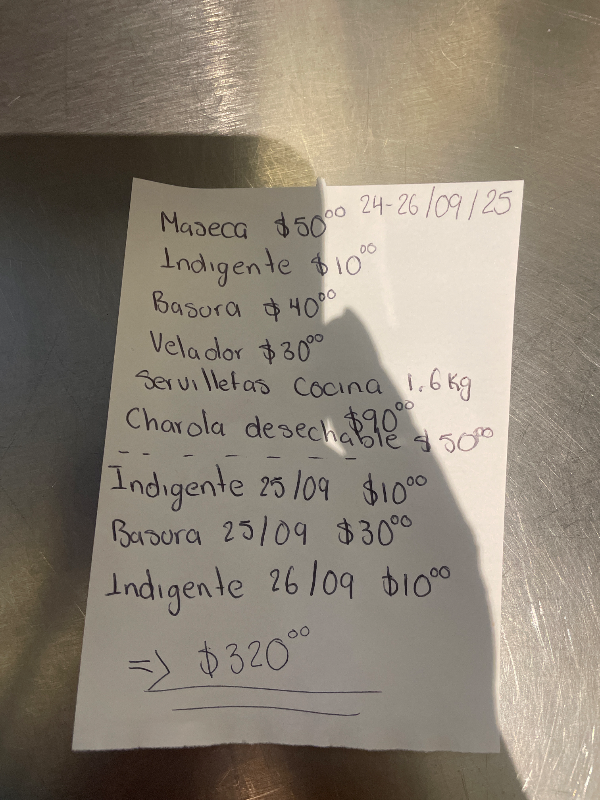 Maseca $50⁰⁰ 24-26/09/25
Indigente $10⁰⁰
Basura $40⁰⁰
Velador $30⁰⁰
Servilletas cocina 1.6kg
$90⁰⁰
Charola desechable $50⁰⁰
Indigente 25/09 $10⁰⁰
Basura 25/09 $30⁰⁰
Indigente 26/09 $10⁰⁰
=> $320⁰⁰